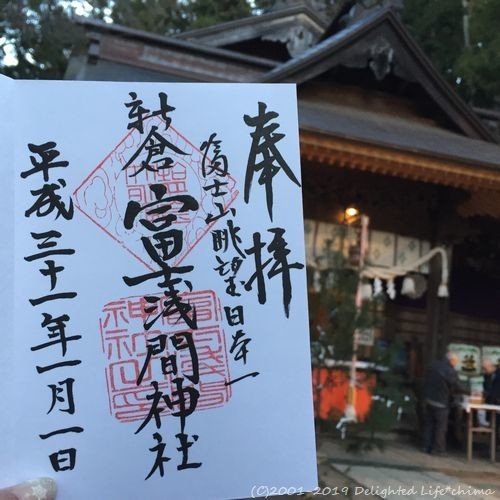 奉拝
富士山眺望日本一
新倉富士浅間神社
平成三十一年一月一日
(C)2001-2019 Delighted Life*chima